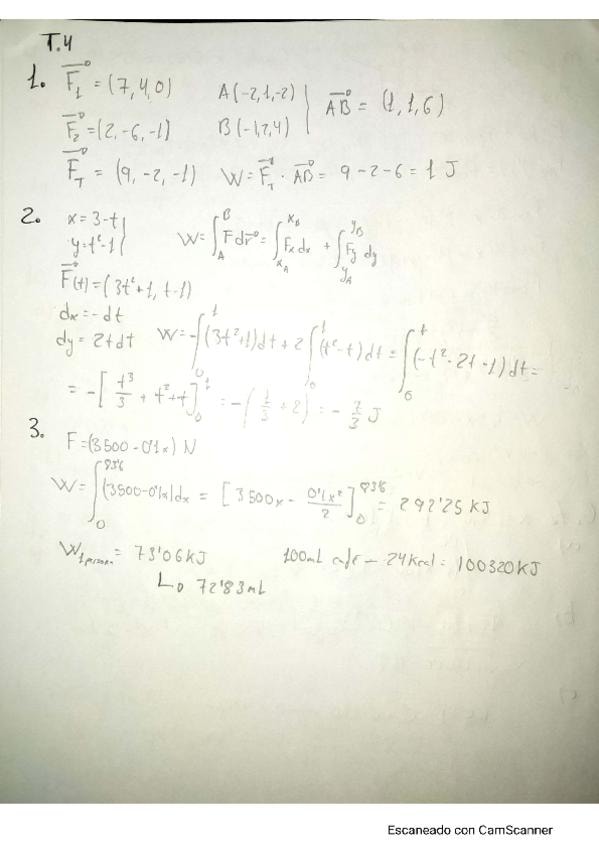 T.4
1. F₁ = (7,4,0) A(-2,1,-2) | AB = (1,1,6)
F₂ = (2,-6,-1) B(-1,2,4)
F_T = (9,-2,-1) W = F_T · AB = 9-2-6 = 1 J
2. x = 3-t
y = t²-1 | W = ∫_A^B F dr = ∫_{x_A}^{x_B} Fx dx + ∫_{y_A}^{y_B} Fy dy
F(t) = (3t²+1, t-1)
dx = -dt
dy = 2tdt W = -∫_0^1 (3t²+1)dt + 2∫_0^1 (t²-t)dt = ∫_0^1 (-t²-2t-1)dt =
= -[t³/3 + t²+t]_0^1 = -(1/3 + 2) = -7/3 J
3. F = (3500 - 0'1x) N
(3500-0'1x)dx = [3500x - 0'1x²/2] = 292'25 KJ
W_{1 persona} = 73'06 KJ 100mL café — 24Kcal = 100320 KJ
↳ 72'83 mL
Escaneado con CamScanner